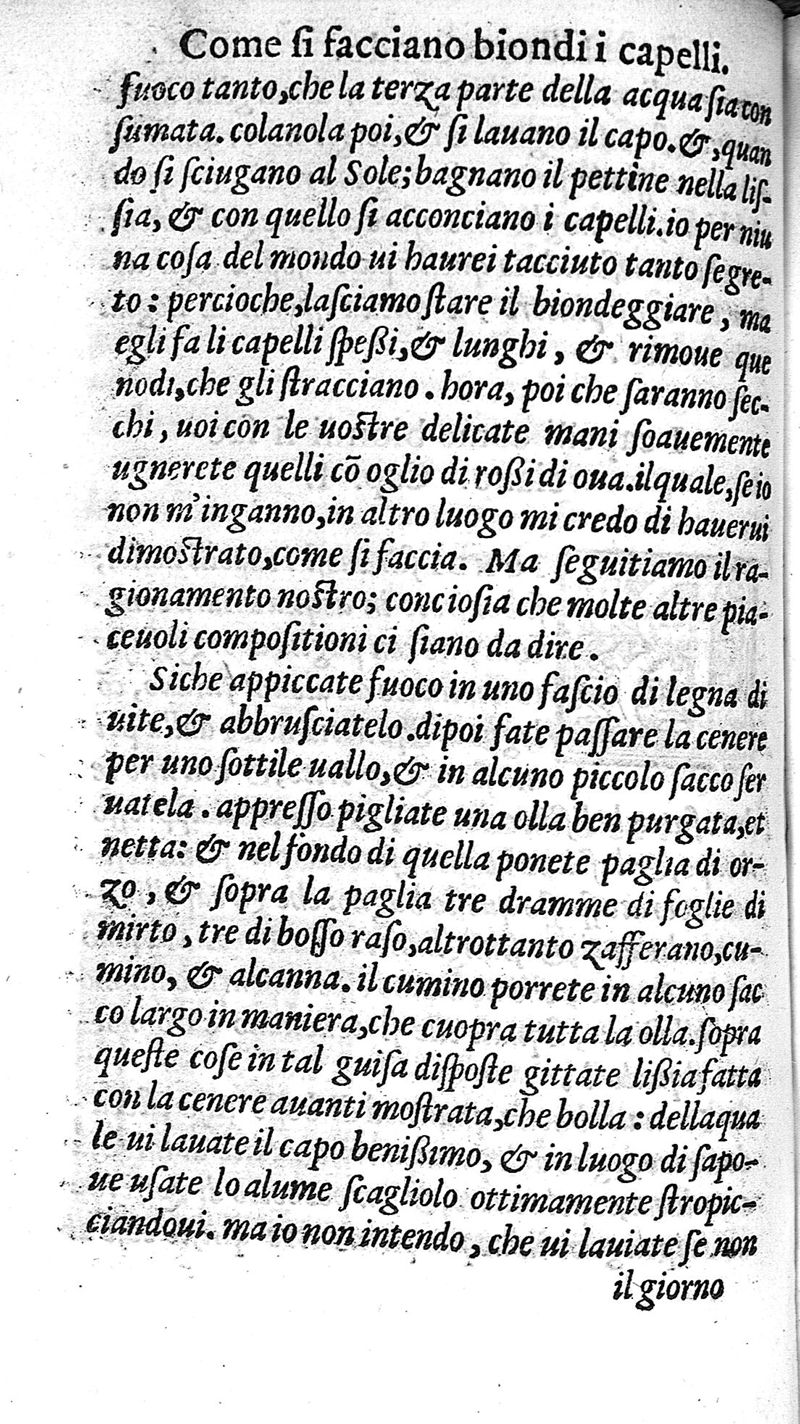 Come ſi facciano biondi i capelli.
fuoco tanto,che la terza parte della acqua ſia con
ſumata. colanola poi,& ſi lauano il capo.&,quan
do ſi ſciugano al Sole; bagnano il pettine nella liſ-
ſia, & con quello ſi acconciano i capelli.io per niu
na coſa del mondo ui haurei tacciuto tanto ſegre-
to : percioche,laſciamo ſtare il biondeggiare, ma
egli fa li capelli ſpeßi,& lunghi, & rimoue que
nodi,che gli ſtracciano. hora, poi che ſaranno ſec-
chi, uoi con le uoſtre delicate mani ſoauemente
ugnerete quelli cõ oglio di roßi di oua.ilquale,ſe io
non m'inganno,in altro luogo mi credo di hauerui
dimoſtrato,come ſi faccia. Ma ſeguitiamo il ra-
gionamento noſtro; concioſia che molte altre pia-
ceuoli compoſitioni ci ſiano da dire.
Siche appiccate fuoco in uno faſcio di legna di
uite,& abbruſciatelo.dipoi fate paſſare la cenere
per uno ſottile uallo,& in alcuno piccolo ſacco ſer
uatela. appreſſo pigliate una olla ben purgata,et
netta: & nel fondo di quella ponete paglia di or-
zo, & ſopra la paglia tre dramme di foglie di
mirto, tre di boſſo raſo,altrottanto zafferano,cu-
mino, & alcanna. il cumino porrete in alcuno ſac
co largo in maniera,che cuopra tutta la olla.ſopra
queſte coſe in tal guiſa diſpoſte gittate lißia fatta
con la cenere auanti moſtrata,che bolla : dellaqua
le ui lauate il capo benißimo, & in luogo di ſapo-
ue uſate lo alume ſcagliolo ottimamente ſtropic-
ciandoui. ma io non intendo, che ui lauiate ſe non
il giorno